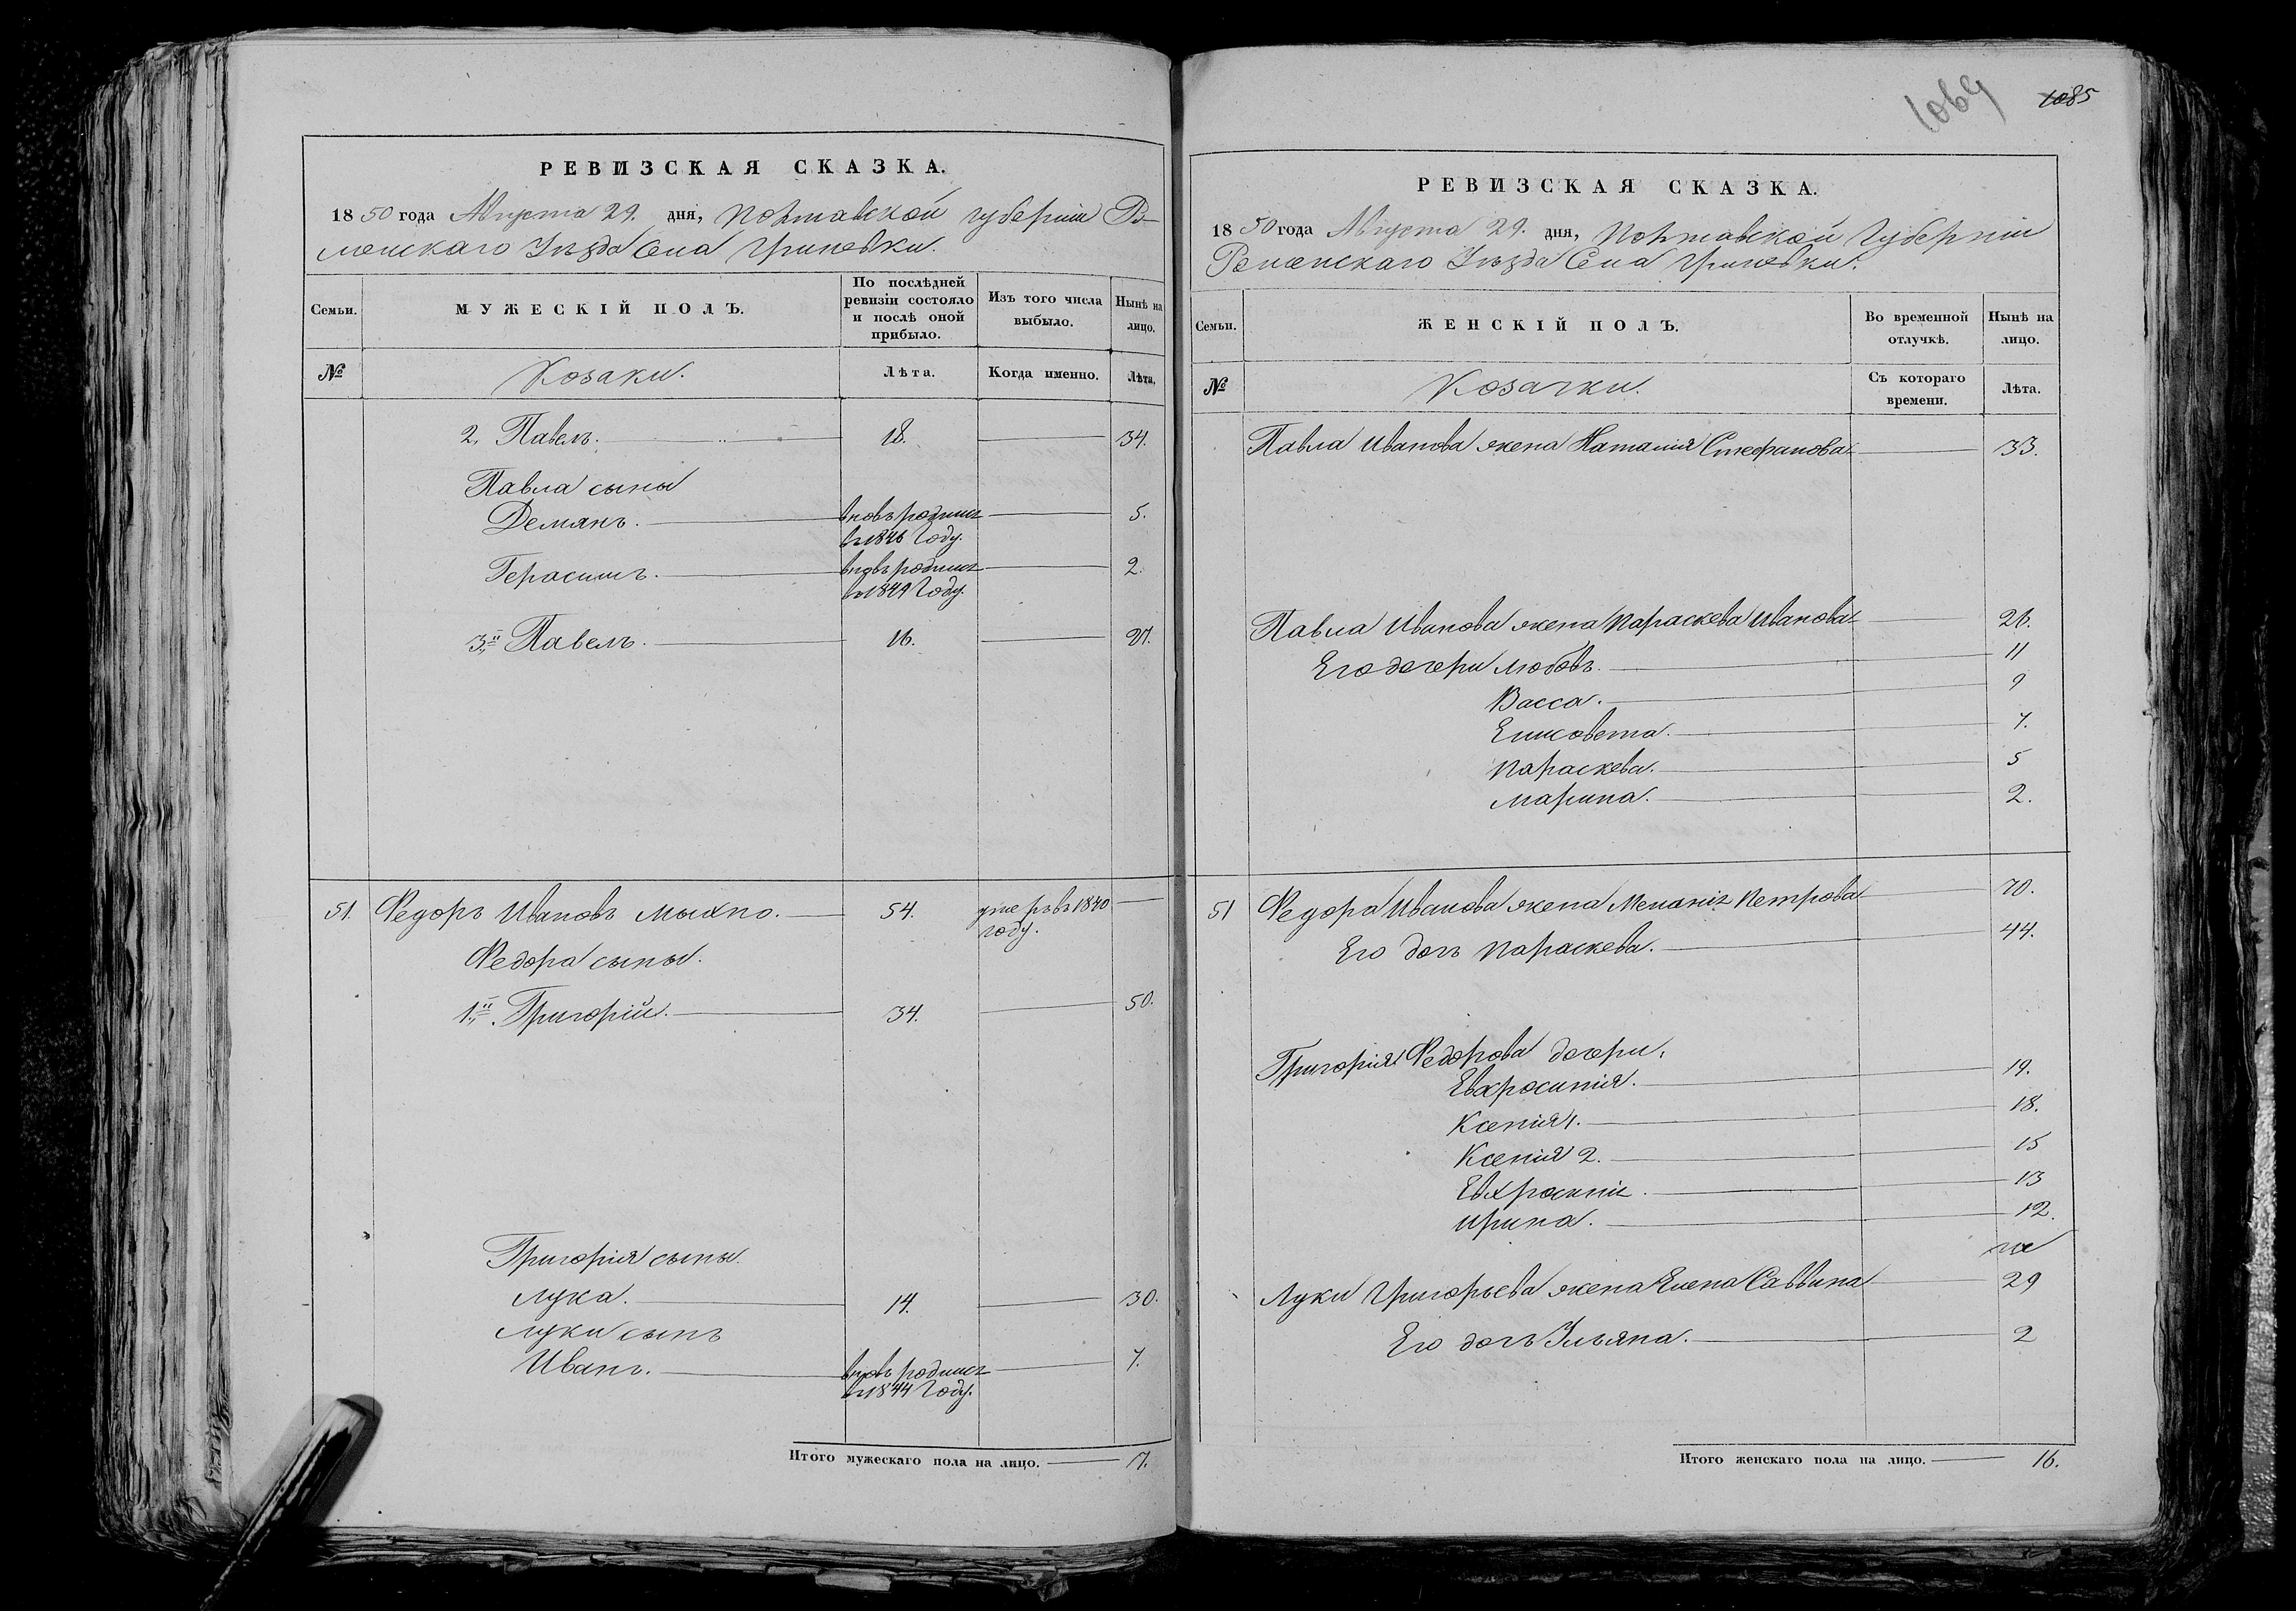 РЕВИЗСКАЯ СКАЗКА.
18 50 года Августа 29. дня, Полтавской губерніи Ро-
менскаго Уѣзда Села Гриневки.
Семьи.
МУЖЕСКІЙ ПОЛЪ.
По послѣдней ревизіи состояло и послѣ оной прибыло.
Изъ того числа выбыло.
Нынѣ на лицо.
№
Козаки.
Лѣта.
Когда именно.
Лѣта.
2. Павелъ. 18. 34.
Павла сыны
Демянъ. вновь родился 5.
въ 1846 Году.
Герасимъ. вновь родился 2.
въ 1849 Году.
3й Павелъ. 16.
51. Федоръ Ивановъ 54. умеръ въ 1840
году.
Федора сыны.
1й. Григорій. 34. 50.
Григорія сыны.
Лука. 14. 30.
Луки сынъ
Иванъ. вновь родился 7.
въ 1844 Году.
Итого мужескаго пола на лицо. 7.
1069 1085
РЕВИЗСКАЯ СКАЗКА.
18 50 года Августа 29. дня, Полтавской Губерніи
Роменскаго Уѣзда Села Гриневки.
Семьи.
ЖЕНСКІЙ ПОЛЪ.
Во временной отлучкѣ.
Нынѣ на лицо.
№
Козачки.
Съ котораго времени.
Лѣта.
Павла Иванова жена Наталія Стефанова 33.
Павла Иванова жена Параскева Иванова 26.
Его дочери Любовь. 11
Васса. 9
Елисавета. 7.
Параскева. 5
Марина. 2.
51 Федора Иванова жена Меланія Петрова 70.
Его дочь Параскева. 44.
Григорія Федорова дочери.
Евфросинія. 19.
Ксенія 1. 18.
Ксенія 2. 15
13
Ирина. 12.
Луки Григорьева жена Елена Саввина 29
Его дочь Ульяна. 2
Итого женскаго пола на лицо. 16.